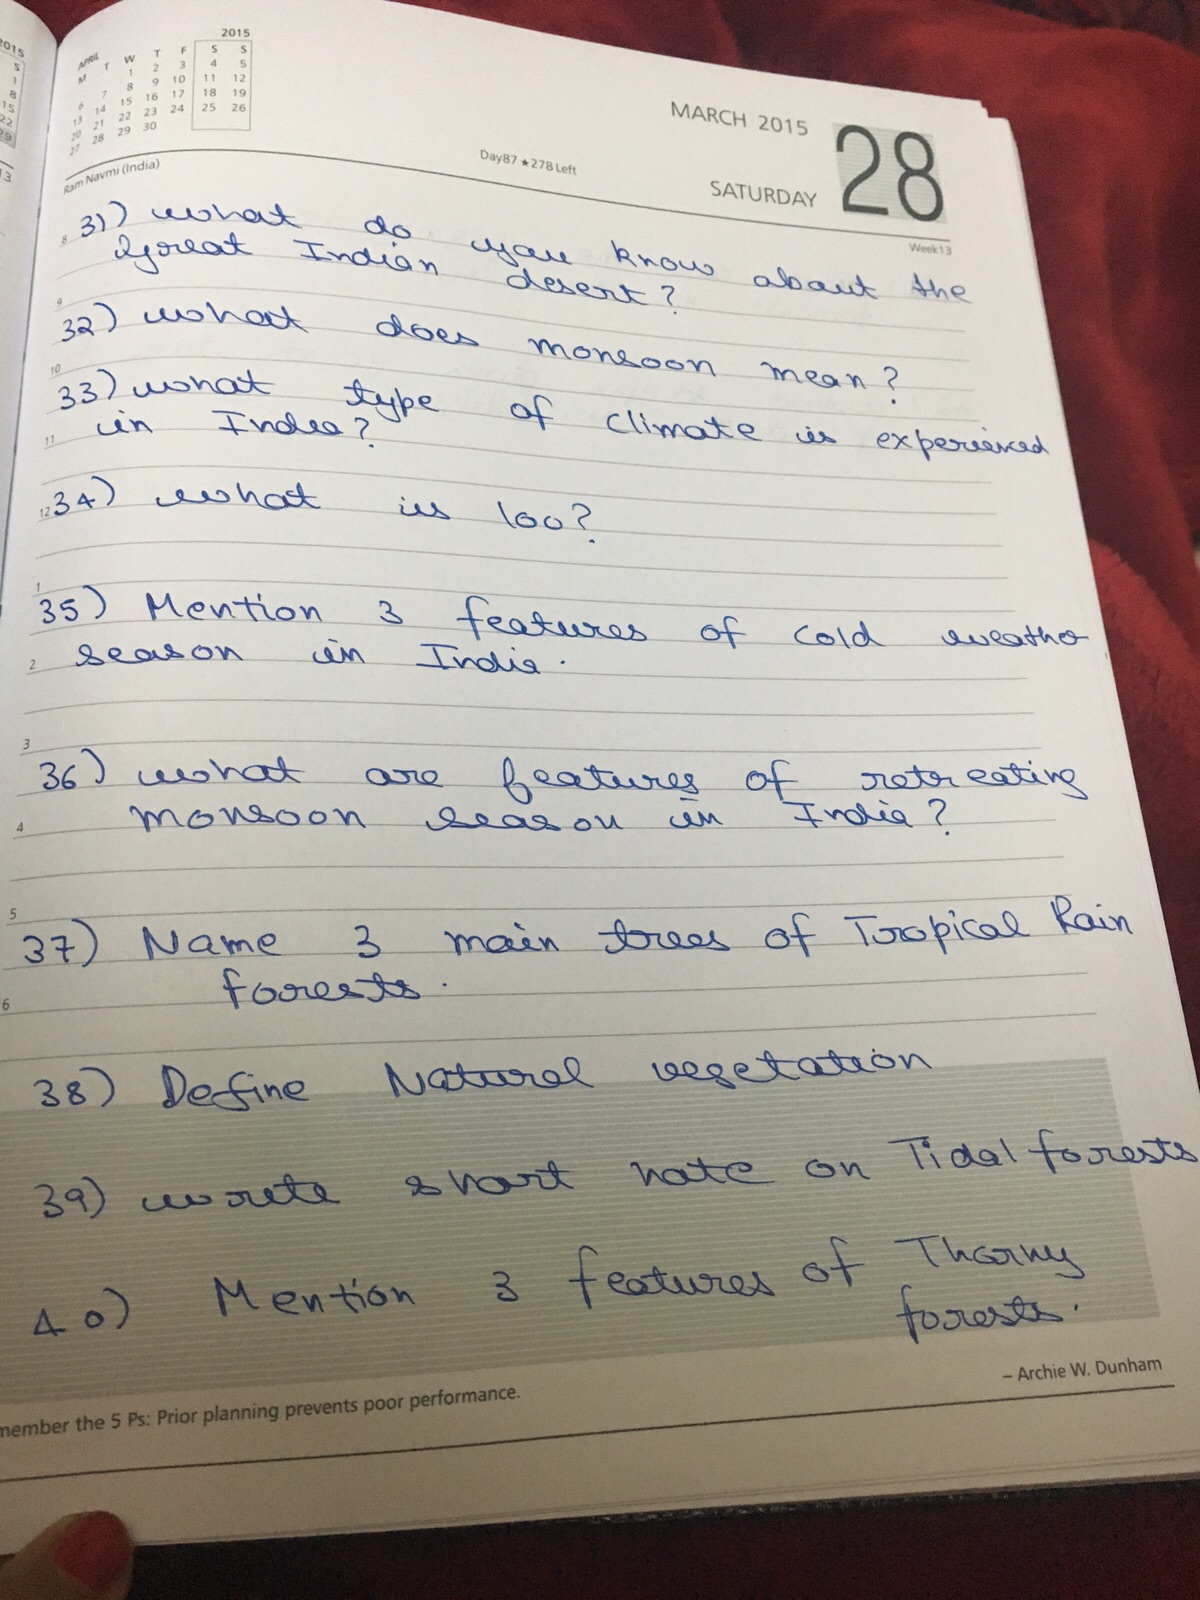 2015
S
1
8
15
22
29
13
2015
APRIL
M T W T F S S
1 2 3 4 5
6 7 8 9 10 11 12
13 14 15 16 17 18 19
20 21 22 23 24 25 26
27 28 29 30
MARCH 2015
28
SATURDAY
Ram Navmi (India)
Day87 ★ 278 Left
Week13
8 31) what do you know about the
Great Indian desert?
9
32) what does monsoon mean?
10
33) what type of climate is experienced
11 in India?
12 34) what is loo?
1
35) Mention 3 features of cold weather
2 season in India.
3
36) what are features of retreating
4 monsoon season in India?
5
37) Name 3 main trees of Tropical Rain
6 forests.
38) Define Natural vegetation
39) write short note on Tidal forests
40) Mention 3 features of Thorny
forests.
– Archie W. Dunham
member the 5 Ps: Prior planning prevents poor performance.